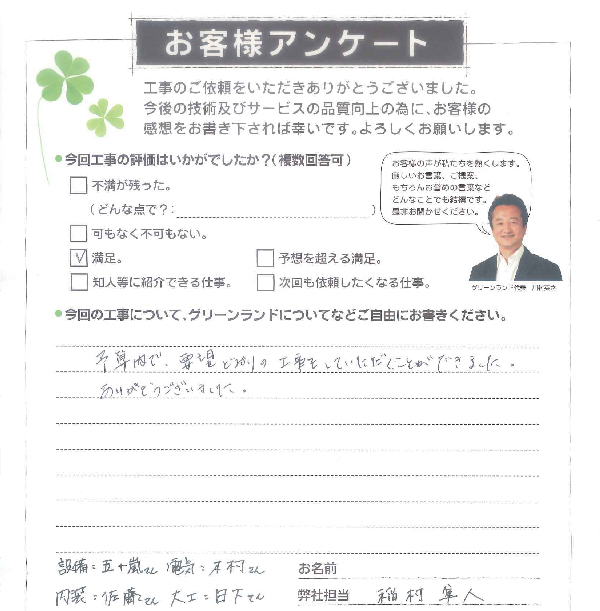 お客様アンケート
工事のご依頼をいただきありがとうございました。
今後の技術及びサービスの品質向上の為に、お客様の
感想をお書き下されば幸いです。よろしくお願いします。
●今回工事の評価はいかがでしたか?(複数回答可)
不満が残った。
(どんな点で?:　　　　　)
可もなく不可もない。
満足。　予想を超える満足。
知人等に紹介できる仕事。　次回も依頼したくなる仕事。
お客様の声が私たちを熱くします。
厳しいお言葉、ご提案、
もちろんお誉めの言葉など
どんなことでも結構です。
是非お聞かせください。
グリーンランド代表
●今回の工事について、グリーンランドについてなどご自由にお書きください。
予算内で、要望どおりの工事をしていただくことができました。
ありがとうございました。
設備:五十嵐さん　電気:木村さん　お名前
内装:佐藤さん　大工:日下さん　弊社担当　稲村 隼人